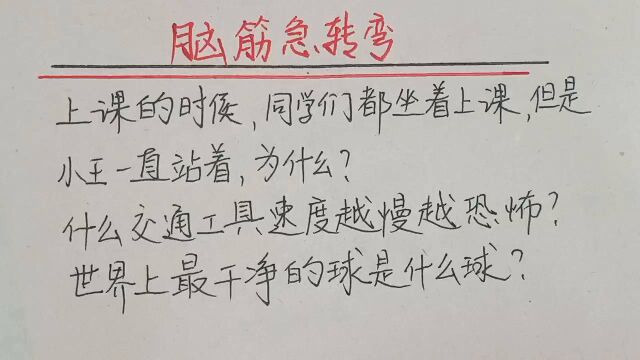 脑筋急转弯
上课的时侯,同学们都坐着上课,但是
小王一直站着,为什么?
什么交通工具速度越慢越恐怖?
世界上最干净的球是什么球?